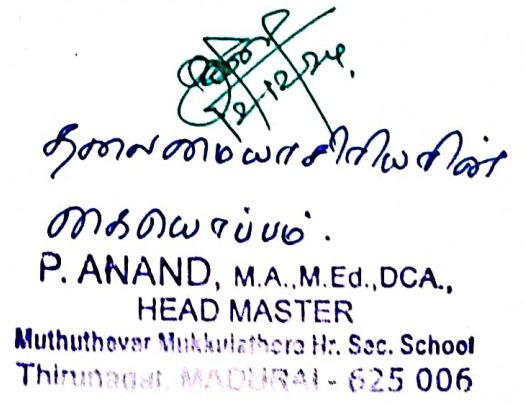 12.12.24.
தலைமையாசிரியரின்
கையொப்பம்.
P. ANAND, M.A.,M.Ed.,DCA.,
HEAD MASTER
Muthuthevar Mukkulathore Hr. Sec. School
Thirunagar, MADURAI - 625 006